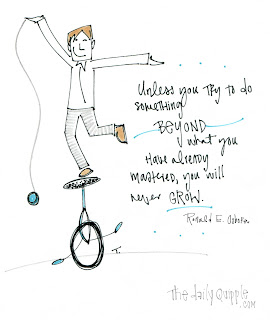 Unless you try to do
something
BEYOND
what you
Have already
mastered, you will
never GROW.
Ronald E. Osborn
the daily Quipple
.COM